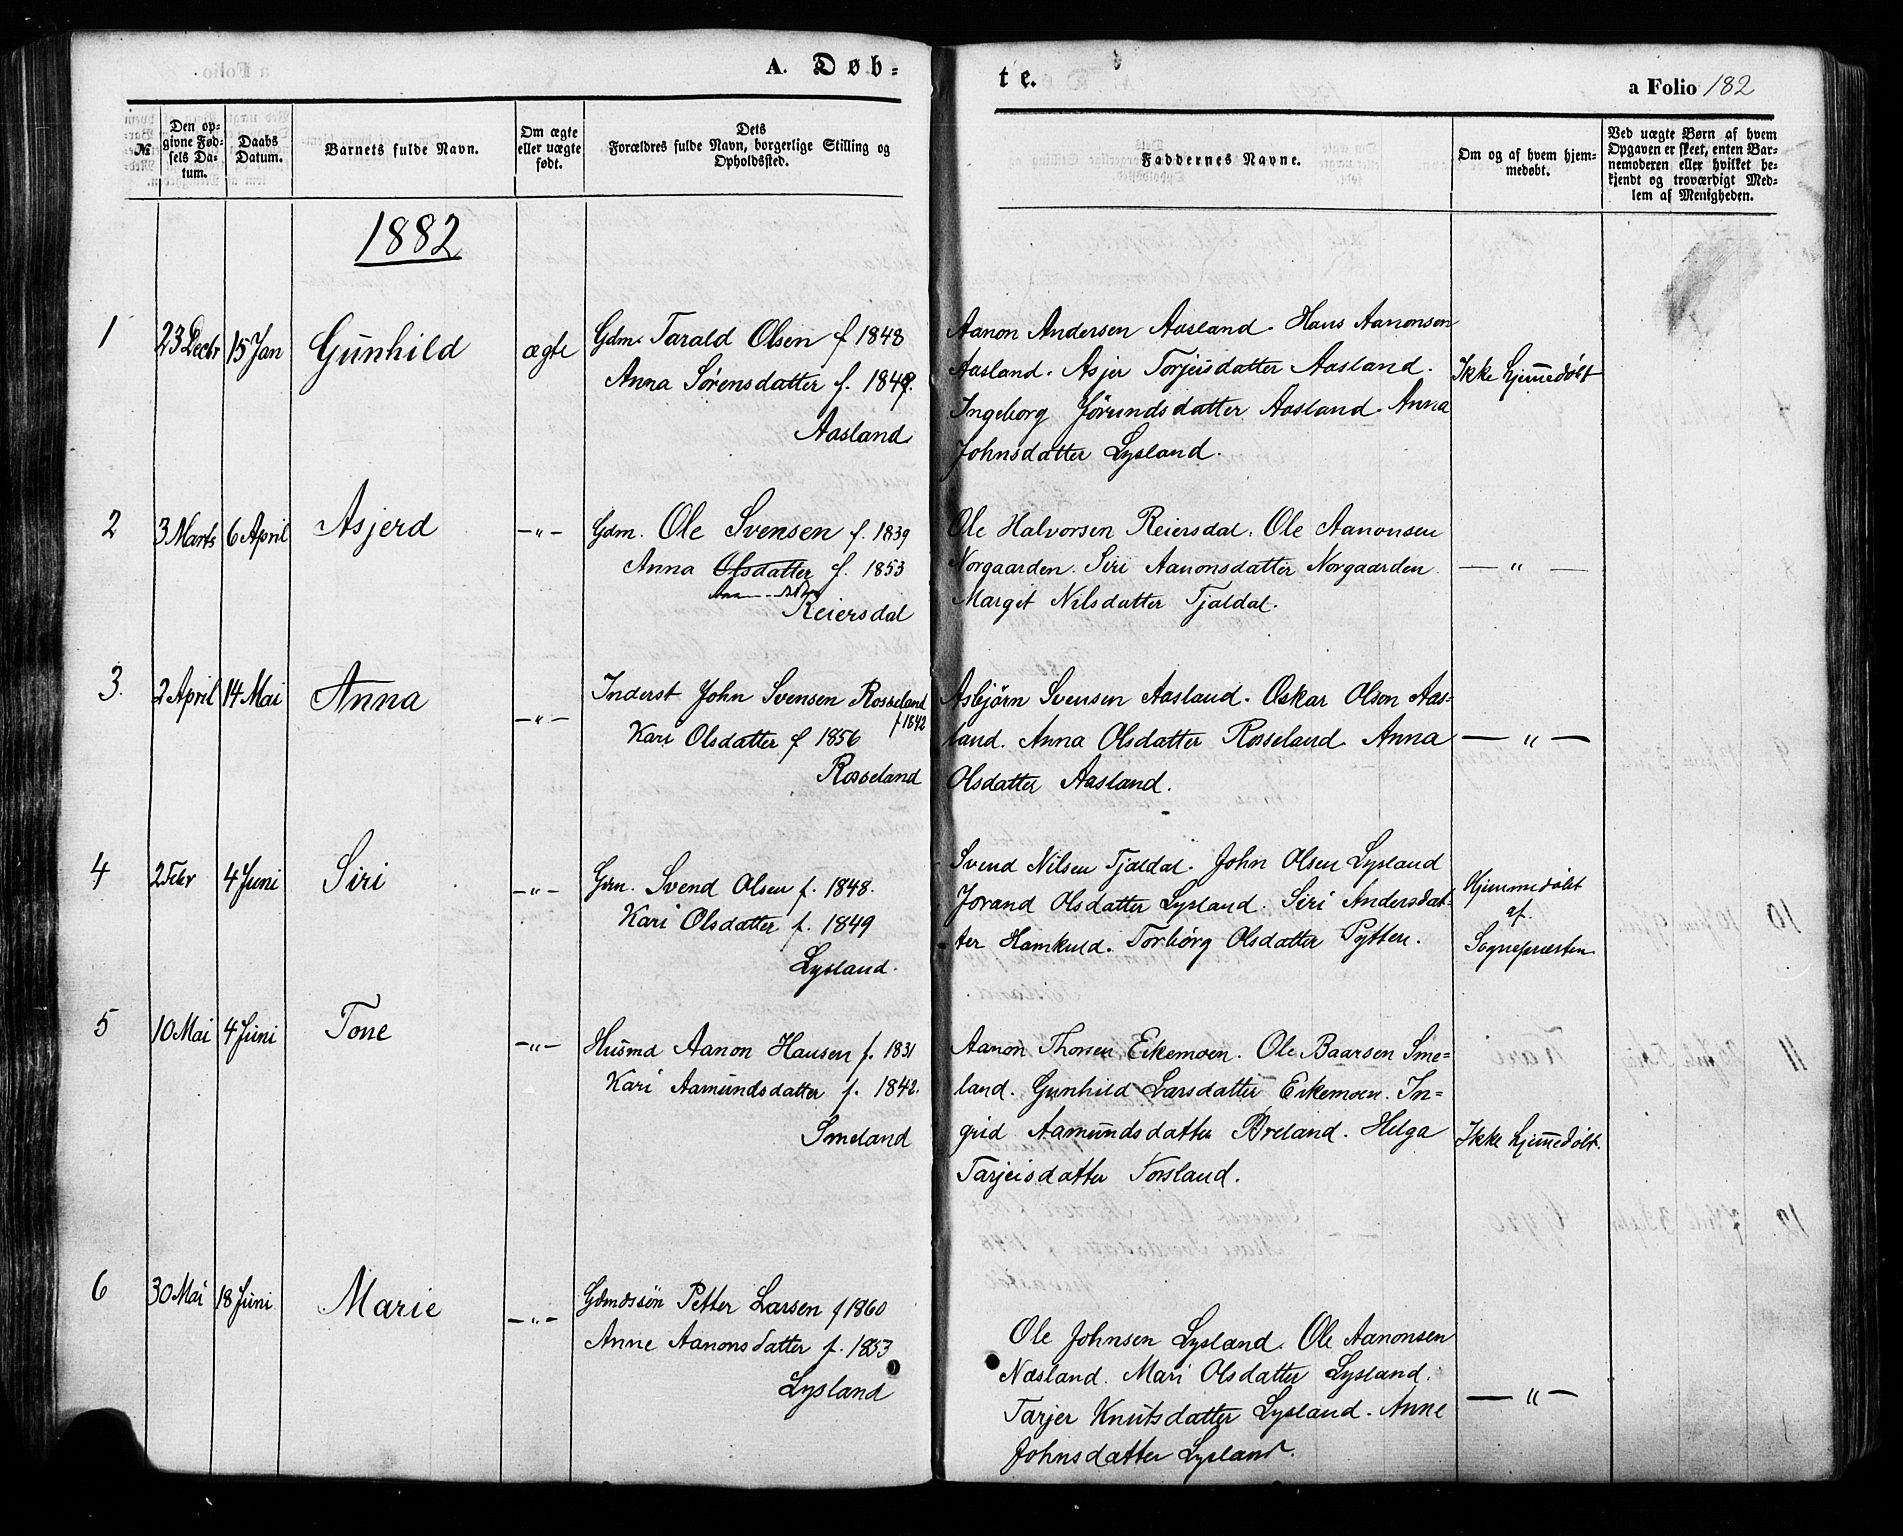 A. Døb-
te.
a Folio 182
№
Den op-
givne Fød-
sels Da-
tum.
Daabs
Datum.
Barnets fulde Navn.
Om ægte
eller uægte
født.
Dets
Forældres fulde Navn, borgerlige Stilling og
Opholdssted.
Faddernes Navne.
Om og af hvem hjem-
medøbt.
Ved uægte Børn af hvem
Opgaven er skeet, enten Bar-
nemoderen eller hvilket be-
kjendt og troværdigt Med-
lem af Menigheden.
1882
1
23 Decbr
15 Jan
Gunhild
ægte
Gdm. Tarald Olsen f 1848
Anna Sørensdatter f. 1849.
Aasland
Aanon Andersen Aasland. Hans Aanonsen
Aasland. Asjer Torjeisdatter Aasland.
Ingeborg Jörundsdatter Aasland. Anna
Johnsdatter Lysland.
Ikke hjemmedøbt
2
3 Marts
6 April
Asjerd
—"—
Gdm. Ole Svensen f. 1839
Anna Olsdatter f. 1853
Reiersdal
Ole Halvorsen Reiersdal. Ole Aanonsen
Norgaarden. Siri Aanonsdatter Norgaarden
Marget Nilsdatter Tjaldal.
— " —
3.
2 April
14 Mai
Anna
—"—
Inderst John Svensen Rosseland
f 1842
Kari Olsdatter f 1856
Rosseland
Asbjørn Svensen Aasland. Oskar Olson Aas-
land. Anna Olsdatter Rosseland. Anna
Olsdatter Aasland.
— " —
4
2 Febr
4 Juni
Siri
—"—
Gdm. Svend Olsen f. 1848.
Kari Olsdatter f. 1849
Lysland.
Svend Nilsen Tjaldal. John Olsen Lysland
Jorand Olsdatter Lysland. Siri Andersdat-
ter Homkuld. Torbörg Olsdatter Pytten.
Hjemmedøbt
af.
Sognepræsten
5
10 Mai
4 Juni
Tone
—"—
Husmd Aanon Hansen f. 1831
Kari Aamundsdatter f. 1842.
Smeland
Aanon Thorsen Eikemoen. Ole Baarsen Sme=
land. Gunhild Larsdatter Eikemoen. In=
grid Aamundsdatter Breland. Helga
Tarjeisdatter Torsland.
Ikke hjemmedøbt.
6
30 Mai
18 Juni
Marie
—"—
Gdmdssön Petter Larsen f 1860
Anne Aanonsdatter f. 1853
Lysland
Ole Johnsen Lysland. Ole Aanonsen
Næsland. Mari Olsdatter Lysland.
Tarjer Knutsdatter Lysland. Anne
Johnsdatter Lysland.
— " —